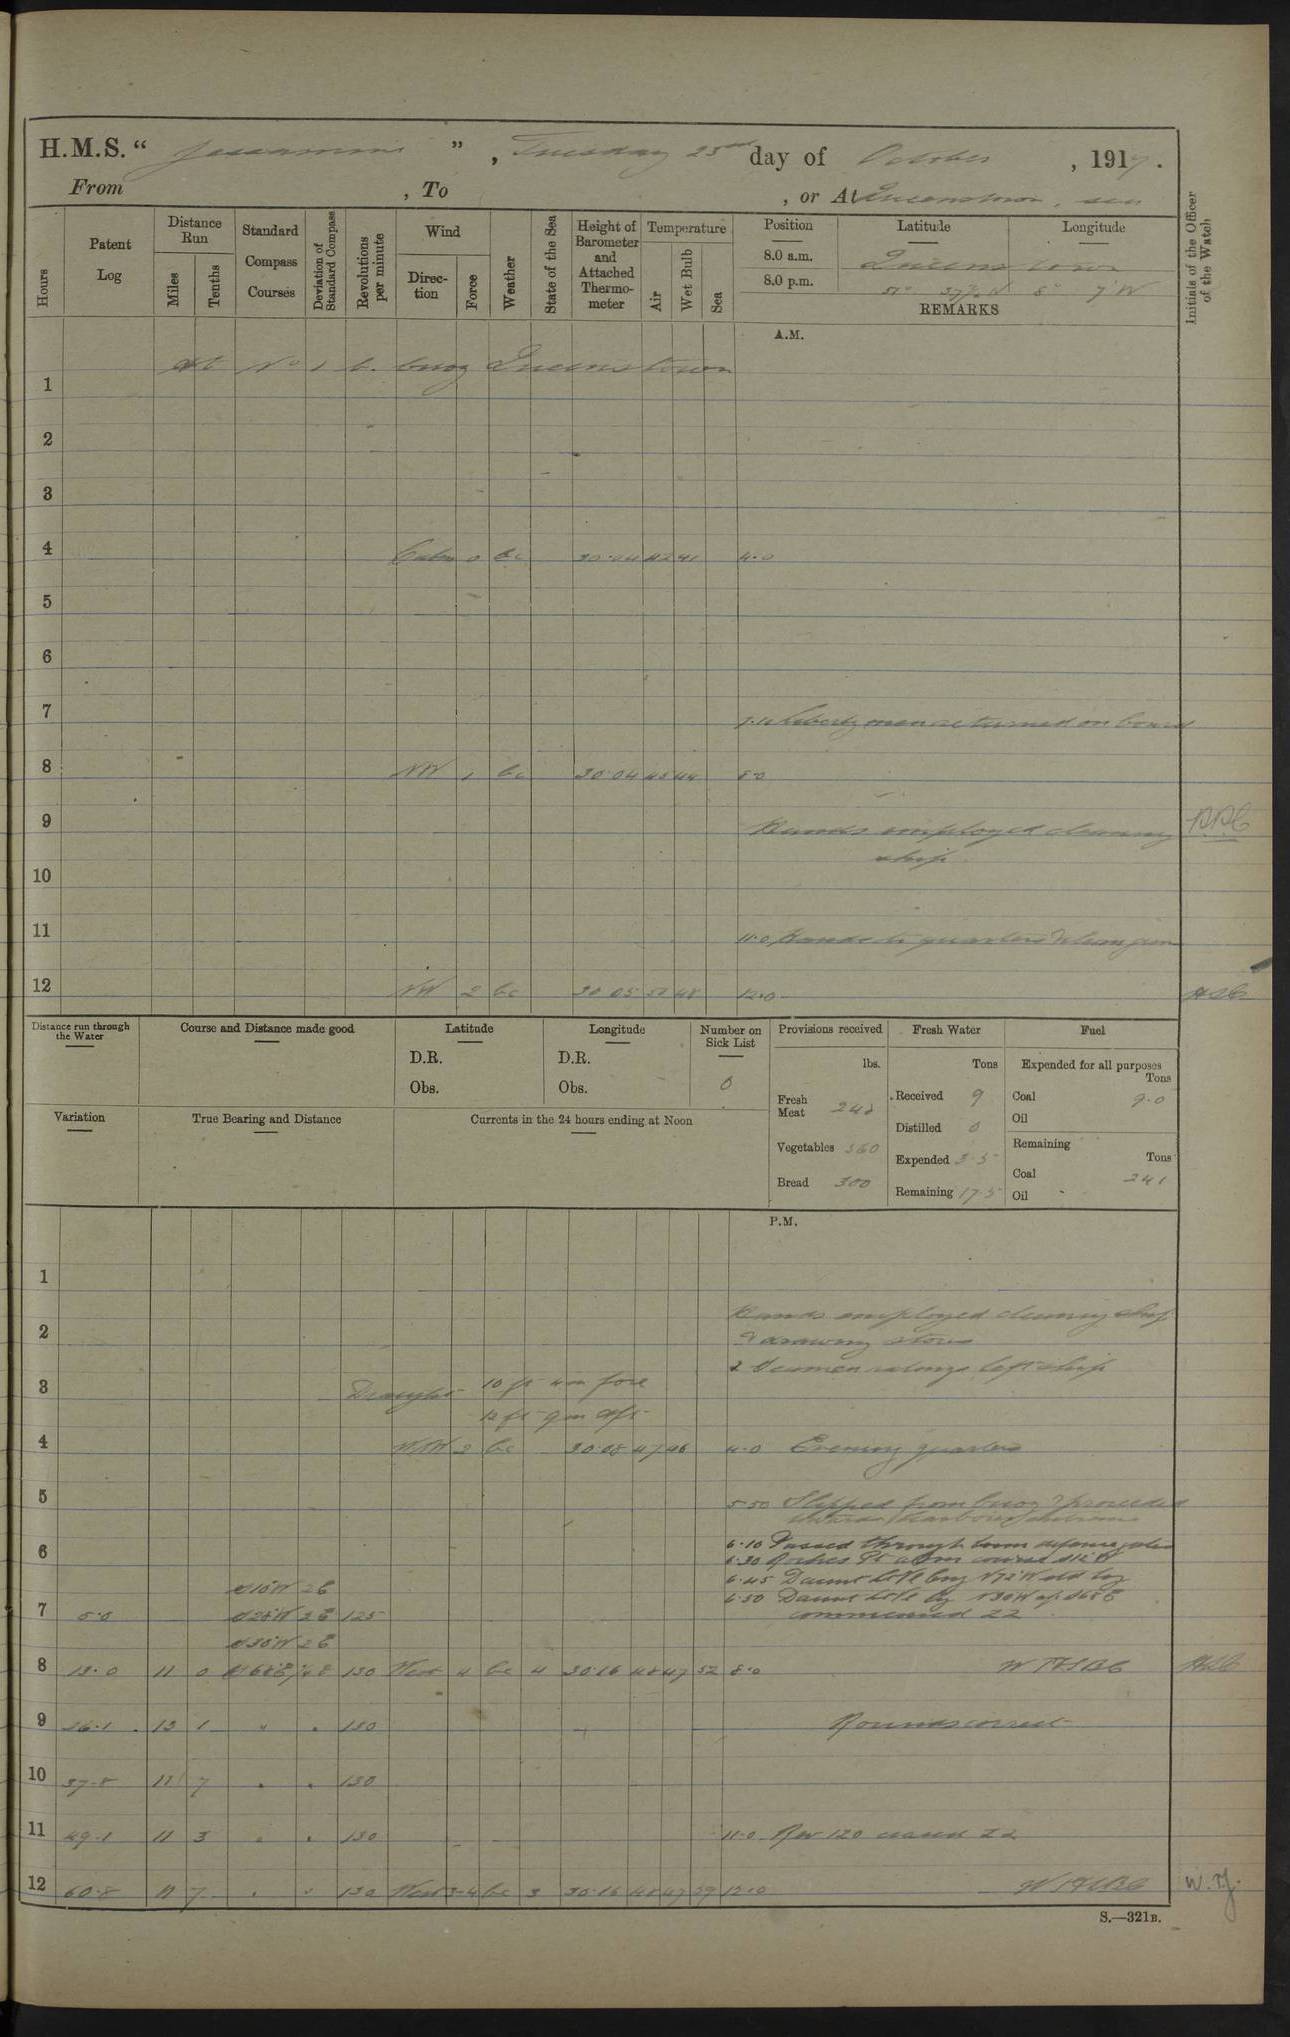 H.M.S. “ Jessamine ” , Tuesday 23rd day of October , 1917.
From , To , or At Queenstown, sea
Hours
Patent Log
Distance Run
Miles
Tenths
Standard Compass Courses
Deviation of Standard Compass
Revolutions per minute
Wind
Direc-tion
Force
Weather
State of the Sea
Height of Barometer and Attached Thermo-meter
Temperature
Air
Wet Bulb
Sea
Position
8.0 a.m.
8.0 p.m.
Latitude
Longitude
Queenstown
51° N 8° 7' W
REMARKS
Initials of the Officer of the Watch
A.M.
At No 1 b. buoy Queenstown
1
2
3
4 Calm 0 bc 30.04 42 41 4.0
5
6
7 7.10 Liberty men returned on board
8 NW 1 bc 30.04 45 44 8.0
9 Hands employed cleaning
ship
10
11 11.0 Hands to quarters clean guns
12 NW 2 bc 30.05 48 12.0
Distance run through the Water
Course and Distance made good
Latitude
D.R.
Obs.
Longitude
D.R.
Obs.
Number on Sick List
0
Provisions received
lbs.
Fresh Meat 248
Vegetables 360
Bread 300
Fresh Water
Tons
Received 9
Distilled 0
Expended 3.5
Remaining 17.5
Fuel
Expended for all purposes
Tons
Coal 9.0
Oil
Remaining
Tons
Coal 241
Oil
Variation
True Bearing and Distance
Currents in the 24 hours ending at Noon
P.M.
1
Hands employed cleaning ship
2 & drawing stores
left ship
3 Draught 10 ft 4 in fore
12 ft 9 in aft
4 2 bc 30.08 47 46 4.0 Evening quarters
5 5.50 Slipped from buoy & proceeded
towards harbour entrance
6 6.10 Passed through boom defence gates
6.30 Roches Pt abm course S12°W
6.45 Daunt Lt Vl brg N72°W
S10°W 2E
6.50 Daunt Lt Vl brg N30W S68E
7 5.0 S28°W 2E 125 commenced ZZ
S30°W 2E
8 13.0 11 0 S68°E 130 West 4 bc 4 30.16 48 47 52 8.0
9 26.1 13 1 " " 130 Rounds correct
10 37.8 11 7 " " 130
11 49.1 11 3 " " 130 11.0 Rev 120 ceased ZZ
12 60.8 11 7 " " 130 West 3-4 bc 3 30.16 48 47 12.0 W.T.J.
S.—321B.